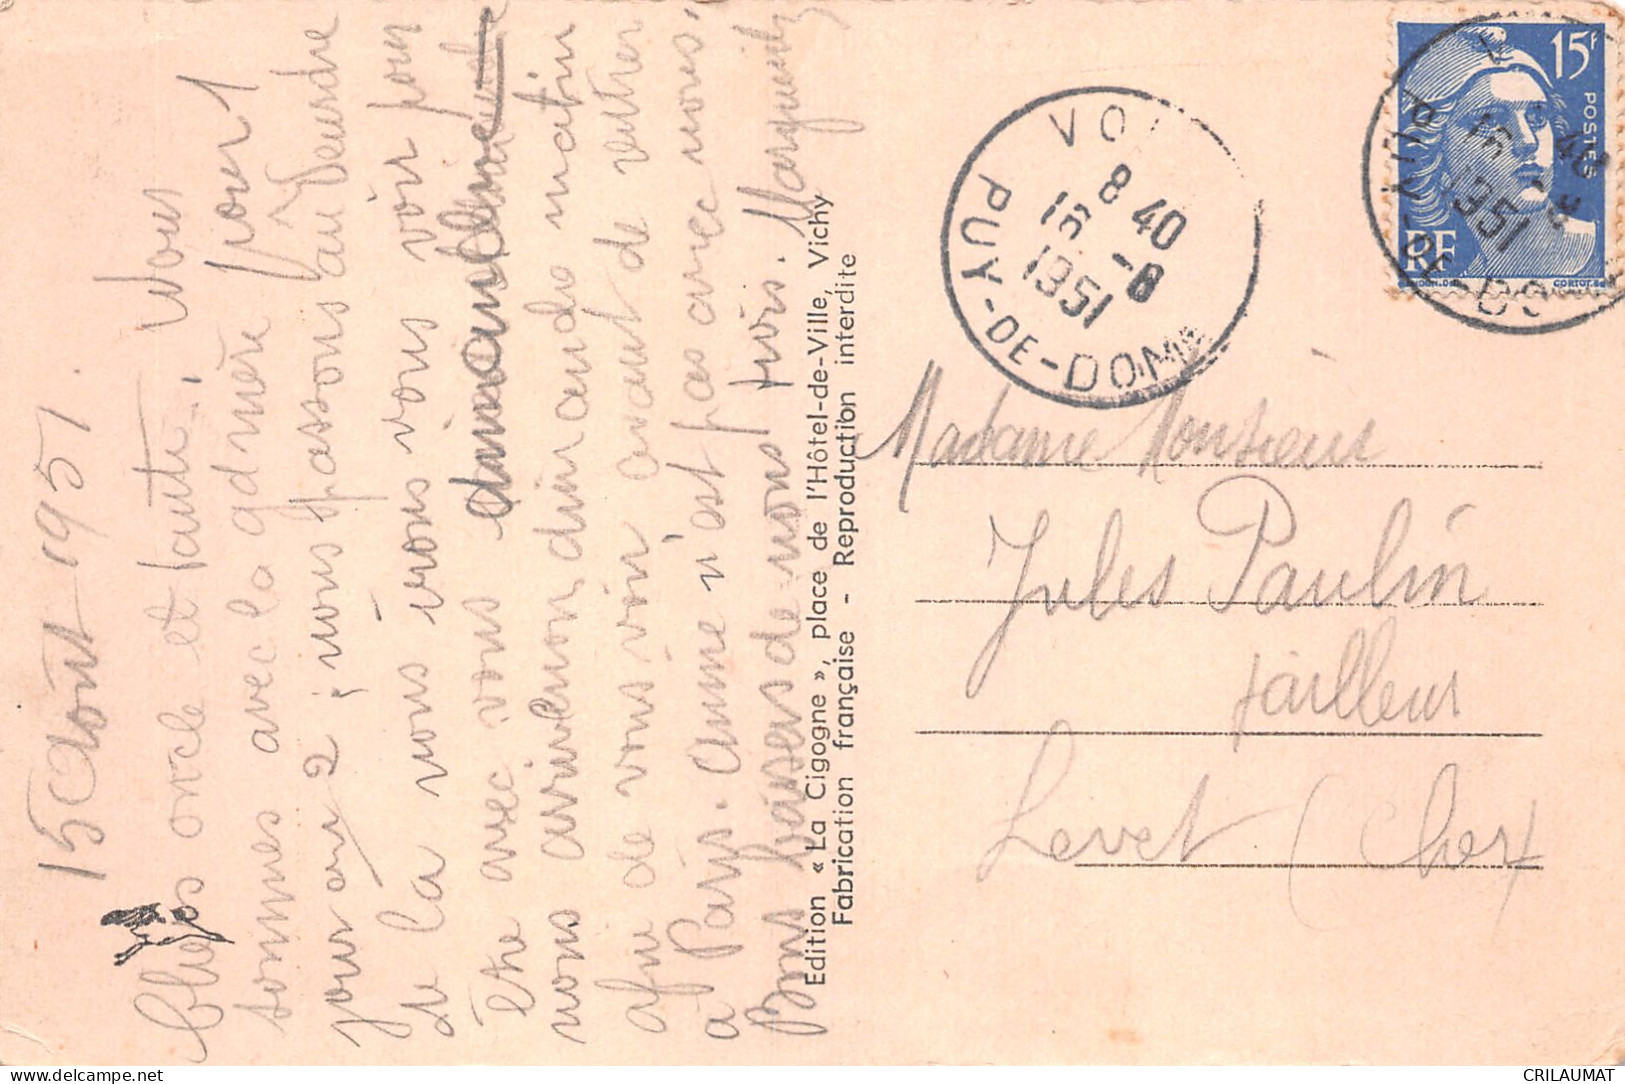 15 Août 1951.
Chers oncle et tante, Nous
sommes avec la 4 pour 1
jour ou 2 ; nous passons au Veurdre
de là nous irons vous voir pour
être avec vous dimanche
nous arriverons dimanche matin
afin de vous voir avant de rentrer
a Paris. Anne n'est pas avec nous.
Bons baisers de nous trois. Marguerite
Edition « La Cigogne », place de l'Hôtel-de-Ville, Vichy
Fabrication française - Reproduction interdite
VO
8 40
16 -8
1951
PUY-DE-DOME
15F
POSTES
RF
GANDON.DEL
CORTOT.SC
16 -8
1951
PUY-DE-DO
Madame Monsieur
Jules Paulin
tailleur
Levet (Cher)
delcampe.net
CRILAUMAT